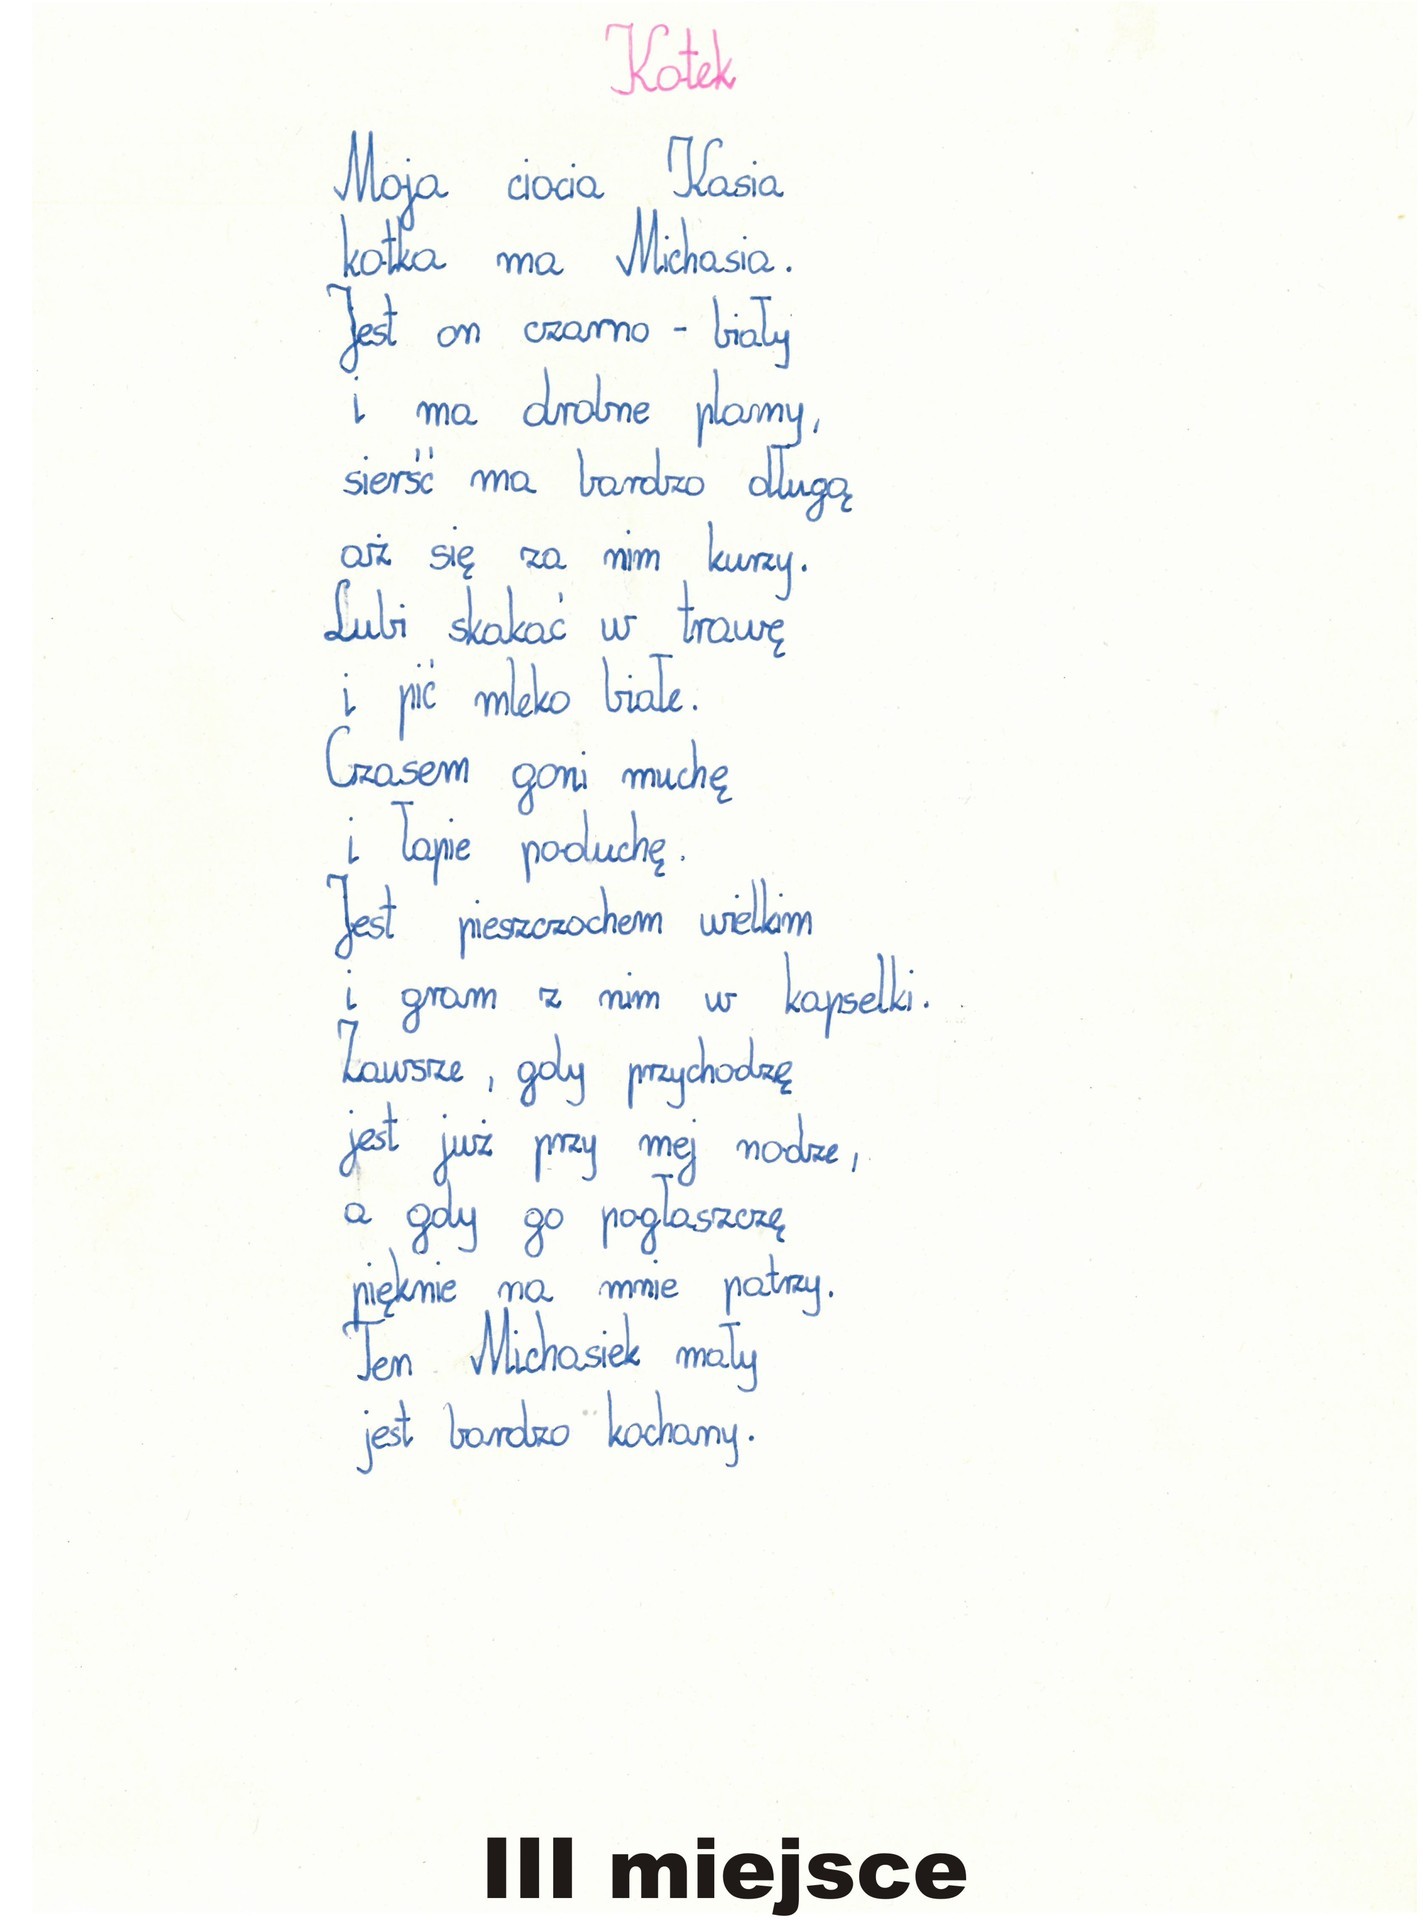 Kotek
Moja ciocia Kasia
kotka ma Michasia.
Jest on czarno - biały
i ma drobne plamy,
sierść ma bardzo długą
aż się za nim kurzy.
Lubi skakać w trawę
i pić mleko białe.
Czasem goni muchę
i łapie poduchę.
Jest pieszczochem wielkim
i gram z nim w kapselki.
Zawsze, gdy przychodzę
jest już przy mej nodze,
a gdy go pogłaszczę
pięknie na mnie patrzy.
Ten Michasiek mały
jest bardzo kochany.
III miejsce